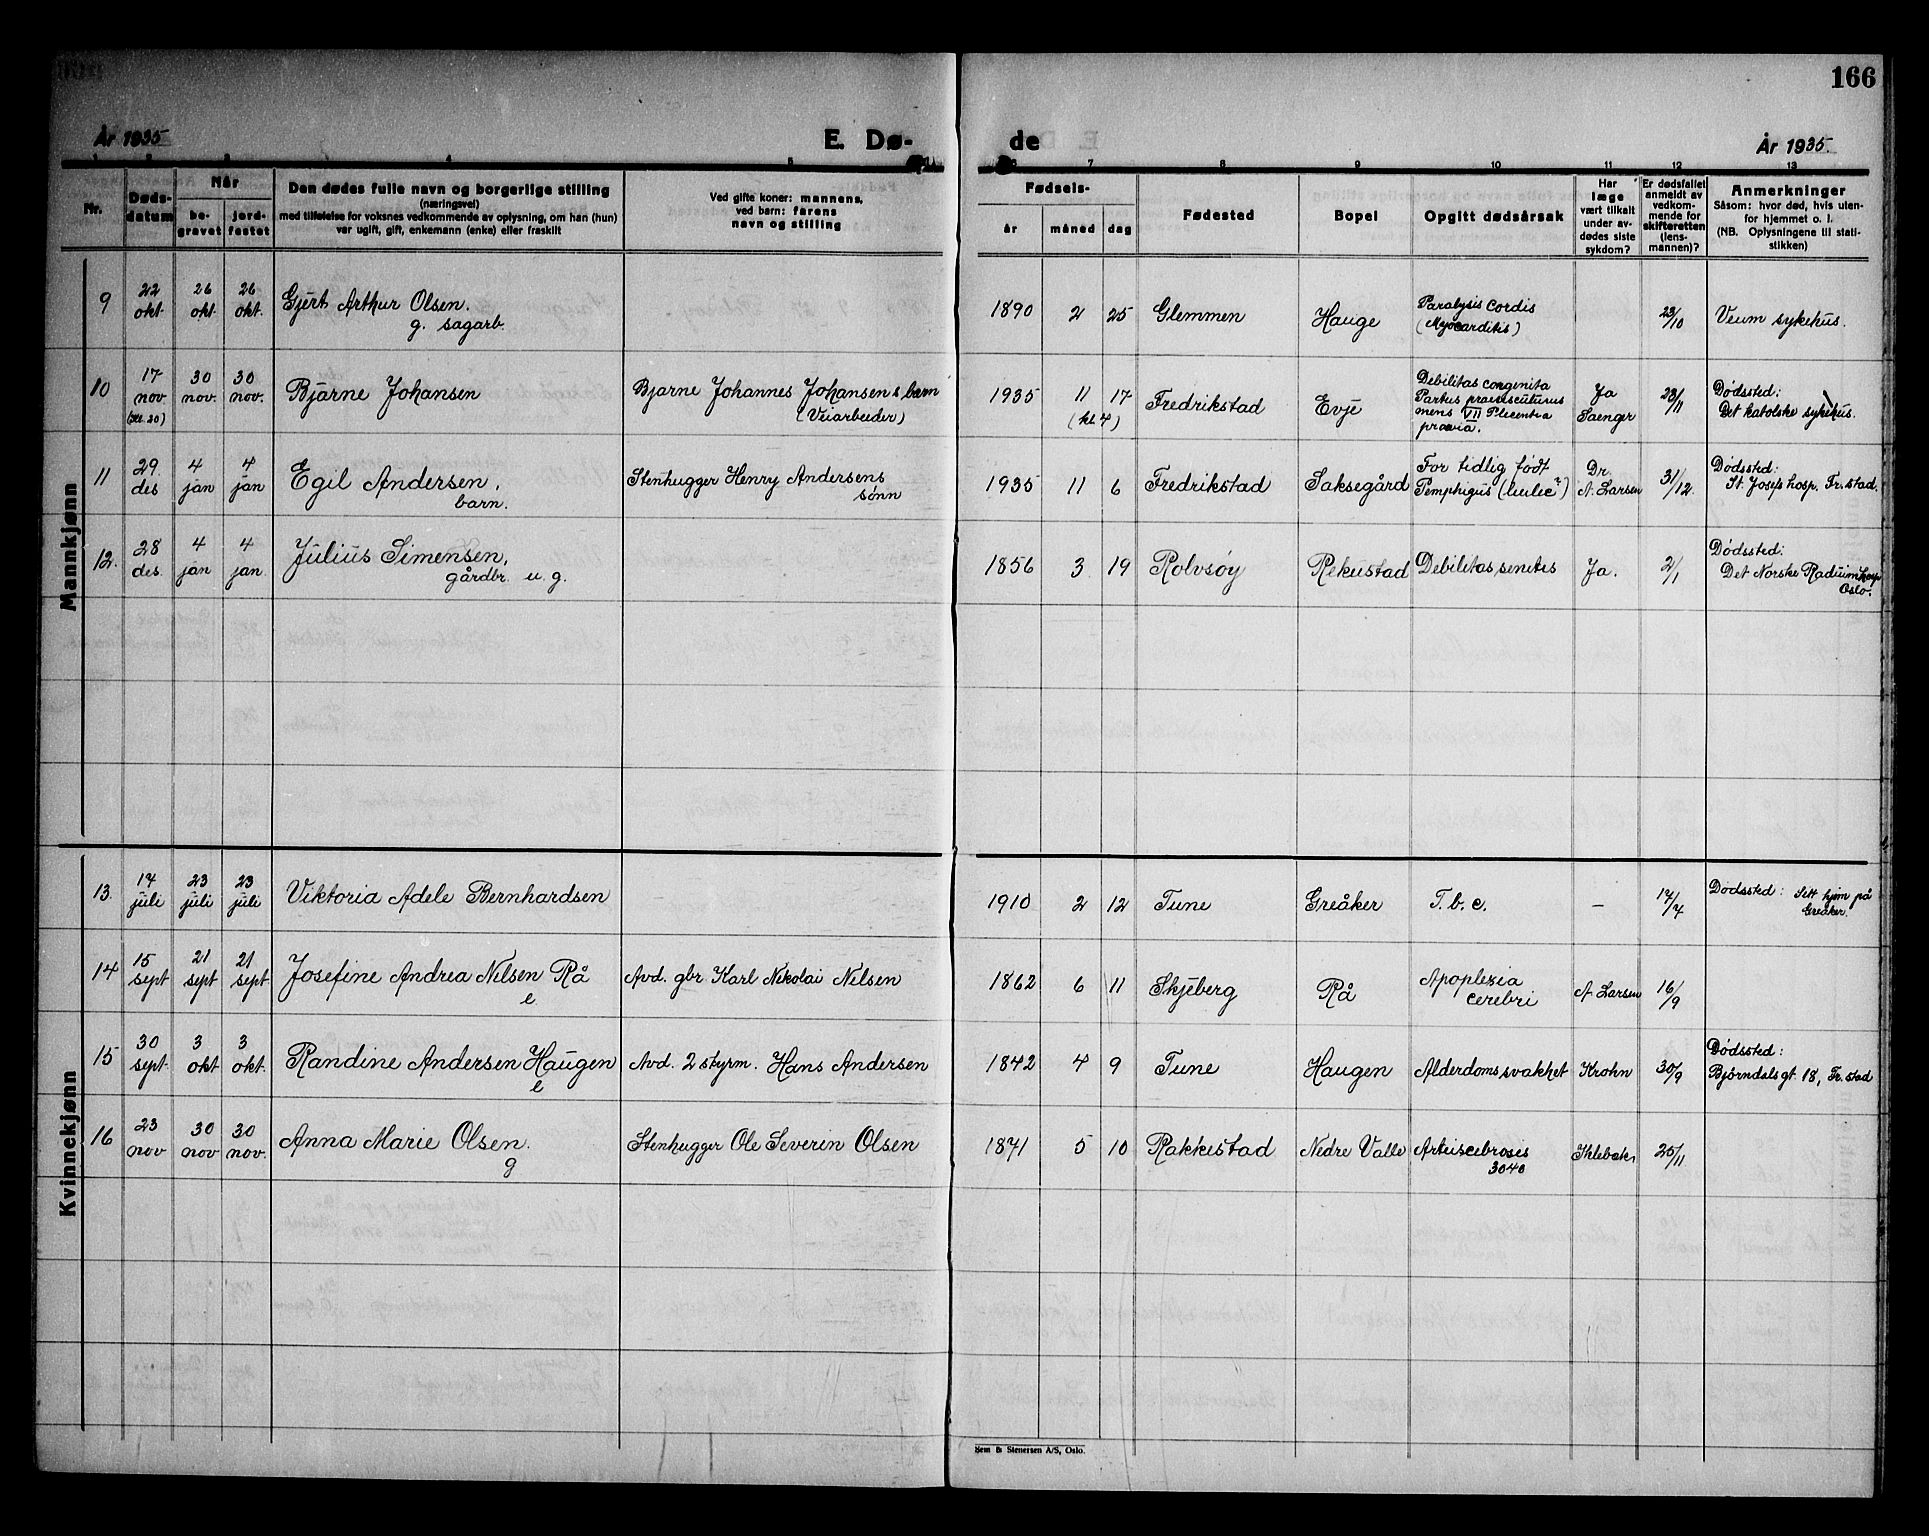 166
År 1935
E. Dø-
de
År 1935.
Nr.
Døds-
datum
Når
be-
gravet
jord-
festet
Den dødes fulle navn og borgerlige stilling
(næringsvei)
med tilføielse for voksnes vedkommende av oplysning, om han (hun)
var ugift, gift, enkemann (enke) eller fraskilt
Ved gifte koner: mannens,
ved barn: farens
navn og stilling
Fødsels-
år
måned
dag
Fødested
Bopel
Opgitt dødsårsak
Har
læge
vært tilkalt
under av-
dødes siste
sykdom?
Er dødsfallet
anmeldt av
vedkom-
mende for
skifteretten
(lens-
mannen)?
Anmerkninger
Såsom: hvor død, hvis uten-
for hjemmet o. l.
(NB. Oplysningene til stati-
stikken)
Mannkjønn
9 22 okt 26 okt. 26 okt. Gjert Arthur Olsen. g. sagarb. 1890 2 25 Glemmen Hauge Paralysis cordis (Myocarditis) 23/10 Veum sykehus.
10 17 nov. (kl. 20) 30 nov. 30 nov. Bjarne Johansen Bjarne Johannes Johansens barn (Veiarbeider) 1935 11 17 (kl. 7) Fredrikstad Evje Debilitas congenita Partus mens VII pravia. Ja Saenger 23/11 Dødssted: Det katolske sykehus.
11 29. des 4 jan 4 jan Egil Andersen, barn. Stenhugger Henry Andersens sønn 1935 11 6 Fredrikstad Saksegård For tidlig født Pemphigus Dr. A. Larsen 31/12. Dødssted: St. Josefs hosp. Fr.stad.
12. 28 des. 4 jan 4 jan. Julius Simensen, gårdbr. u. g. 1856 3 19 Rolvsøy Rekustad Debilitas senilis Ja. 2/1 Dødssted: Det Norske Radiumhosp Oslo.
Kvinnekjønn
13. 17 juli 23 juli 23 juli Viktoria Adele Bernhardsen 1910 2 12 Tune Greåker T. b. c. – 17/7 Dødssted: Sitt hjem på Greåker.
14 15 sept 21 sept 21 sept Josefine Andrea Nilsen Rå e. Avd. gbr Karl Nikolai Nilsen 1862 6 11 Skjeberg Rå Apoplexia cerebri A. Larsen 16/9
15 30 sept. 3 okt 3 okt. Randine Andersen Haugen e Avd. 2 styrm. Hans Andersen 1842 4 9 Tune Haugen Alderdomssvakhet Krohn 30/9 Dødssted: Bjørndalsgt. 18, Fr.stad
16 23 nov 30 nov 30 nov. Anna Marie Olsen. g Stenhugger Ole Severin Olsen 1871 5 10 Rakkestad Nedre Valle 3040 25/11
Sem & Stenersen A/S, Oslo.